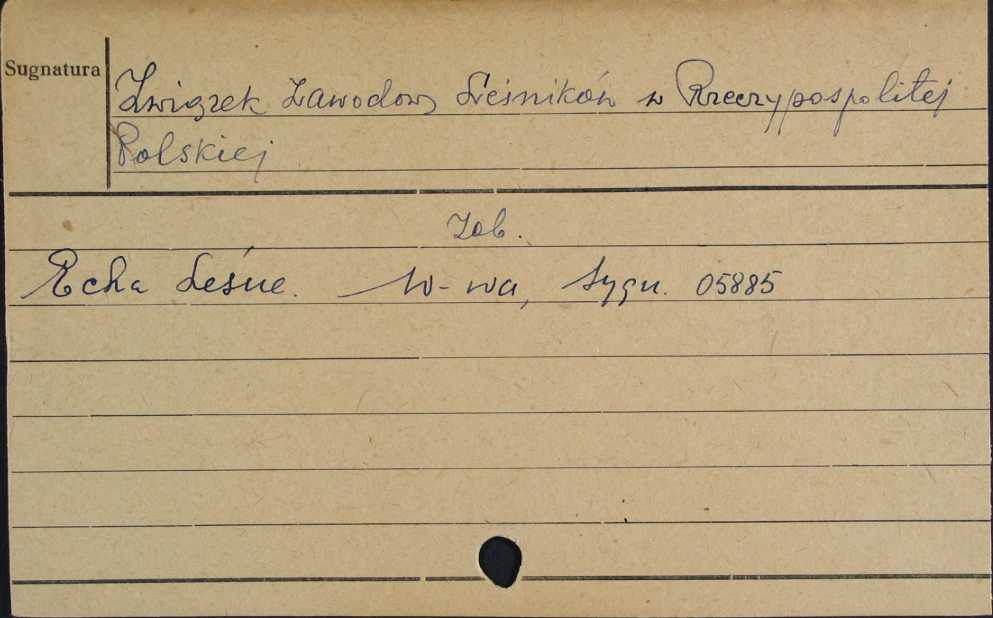 Sugnatura
Związek Zawodowy Leśników w Rzeczypospolitej
Polskiej
Zob.
Echa Leśne. W-wa, Sygn. 05885